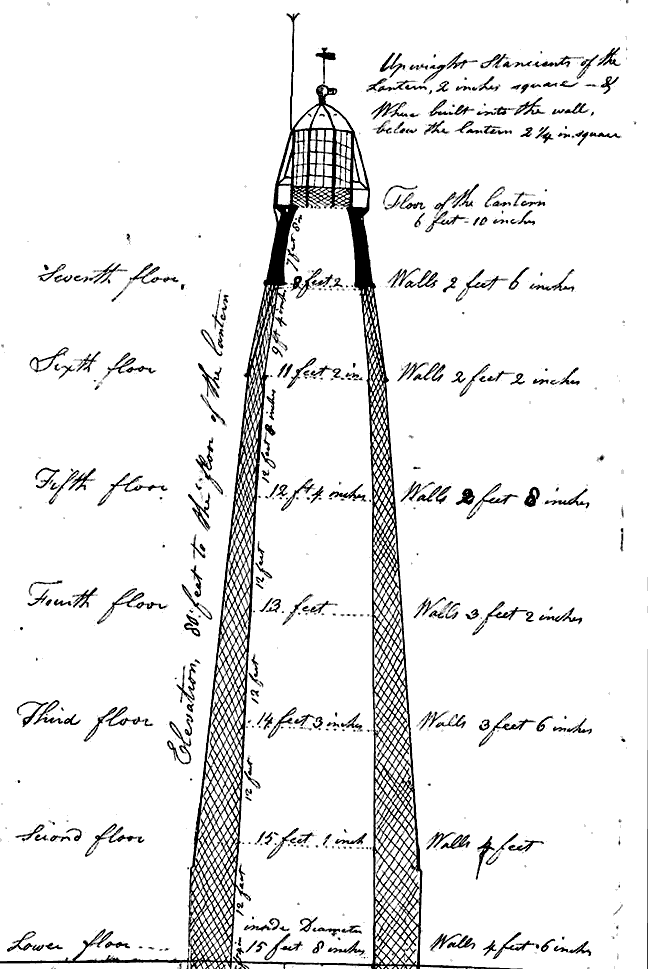 Upwright Stancients of the
Lantern, 2 inches square - &
Where built into the wall,
below the lantern 2 1/4 in square
Floor of the lantern
6 feet - 10 inches
7 feet 8 in
Seventh floor,
8 feet 2
Walls 2 feet 6 inches
9 ft 4 inches
Sixth floor
11 feet 2 in
Walls 2 feet 2 inches
12 feet 8 inches
Fifth floor
12 ft 4 inches
Walls 2 feet 8 inches
12 feet
Fourth floor
13 feet
Walls 3 feet 2 inches
12 feet
Third floor
14 feet 3 inches
Walls 3 feet 6 inches
12 feet
Second floor
15 feet 1 inch
Walls 4 feet
12 feet
Lower floor
inside Diameter
15 feet 8 inches
Walls 4 feet 6 inches
Elevation, 80 feet to the floor of the lantern